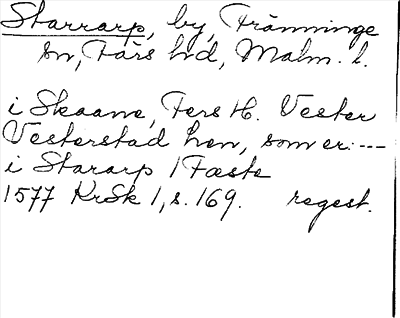 Starrarp, by, Tränninge
sn, Färs hd, Malm. l.
i Skaane, Fers H. Vester
Vesterstad hen, som er: ---
i Stararp 1 Fæste
1577 KrSk 1, s. 169. regest.